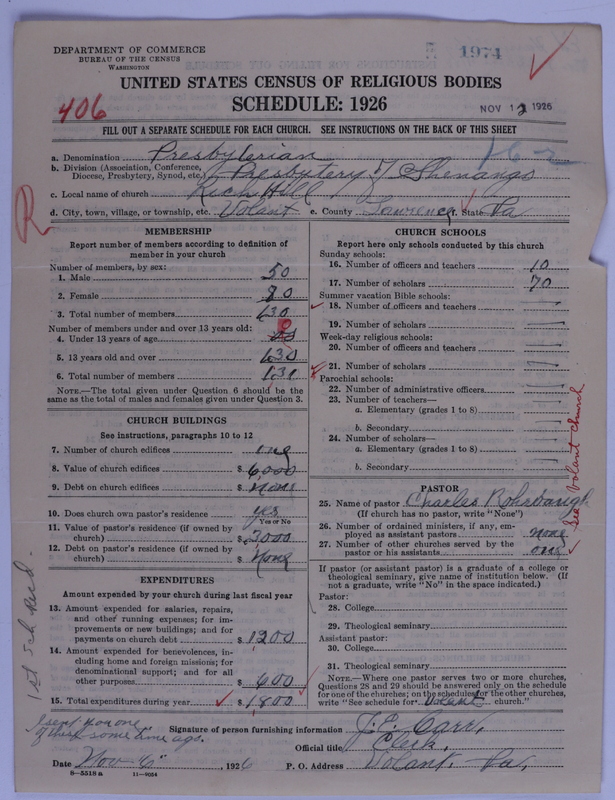 DEPARTMENT OF COMMERCE
BUREAU OF THE CENSUS
WASHINGTON
1974
UNITED STATES CENSUS OF RELIGIOUS BODIES
SCHEDULE: 1926
406
NOV 12 1926
FILL OUT A SEPARATE SCHEDULE FOR EACH CHURCH. SEE INSTRUCTIONS ON THE BACK OF THIS SHEET
16-2
a. Denomination Presbyterian
b. Division (Association, Conference, Diocese, Presbytery, Synod, etc.) Presbytery of Shenango
c. Local name of church Rich Hill
d. City, town, village, or township, etc. Volant e. County Lawrence f. State Pa
R
MEMBERSHIP
Report number of members according to definition of member in your church
Number of members, by sex:
1. Male 50
2. Female 80
3. Total number of members 130
Number of members under and over 13 years old:
4. Under 13 years of age 0
5. 13 years old and over 130
6. Total number of members 130
NOTE.—The total given under Question 6 should be the same as the total of males and females given under Question 3.
CHURCH BUILDINGS
See instructions, paragraphs 10 to 12
7. Number of church edifices one
8. Value of church edifices $ 6,000
9. Debt on church edifices $ None
10. Does church own pastor's residence? yes
Yes or No
11. Value of pastor's residence (if owned by church) $ 3000
12. Debt on pastor's residence (if owned by church) $ None
EXPENDITURES
Amount expended by your church during last fiscal year
13. Amount expended for salaries, repairs, and other running expenses; for improvements or new buildings; and for payments on church debt $ 1200
14. Amount expended for benevolences, including home and foreign missions; for denominational support; and for all other purposes $ 600
15. Total expenditures during year $ 1800
CHURCH SCHOOLS
Report here only schools conducted by this church
Sunday schools:
16. Number of officers and teachers 10
17. Number of scholars 70
Summer vacation Bible schools:
18. Number of officers and teachers
19. Number of scholars
Week-day religious schools:
20. Number of officers and teachers
21. Number of scholars
Parochial schools:
22. Number of administrative officers
23. Number of teachers—
a. Elementary (grades 1 to 8)
b. Secondary
24. Number of scholars—
a. Elementary (grades 1 to 8)
b. Secondary
PASTOR
25. Name of pastor Charles Rohrbaugh
(If church has no pastor, write "None")
26. Number of ordained ministers, if any, employed as assistant pastors none
27. Number of other churches served by the pastor or his assistants one
See Volant Church
If pastor (or assistant pastor) is a graduate of a college or theological seminary, give name of institution below. (If not a graduate, write "No" in the space indicated.)
Pastor:
28. College
29. Theological seminary
Assistant pastor:
30. College
31. Theological seminary
NOTE.—Where one pastor serves two or more churches, Questions 28 and 29 should be answered only on the schedule for one of the churches; on the schedules for the other churches, write "See schedule for Volant church."
1st Sch. Recd.
I sent you one of these some time ago.
Signature of person furnishing information J. E. Carr,
Official title Clerk,
Date Nov 6", 1926 P. O. Address Volant, Pa,
8—5518 a 11—9054